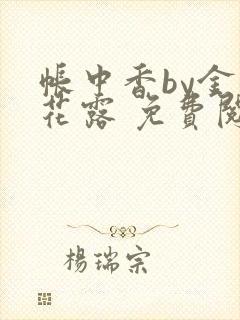 帳中香by金
花露 免費閱
楊瑞宗